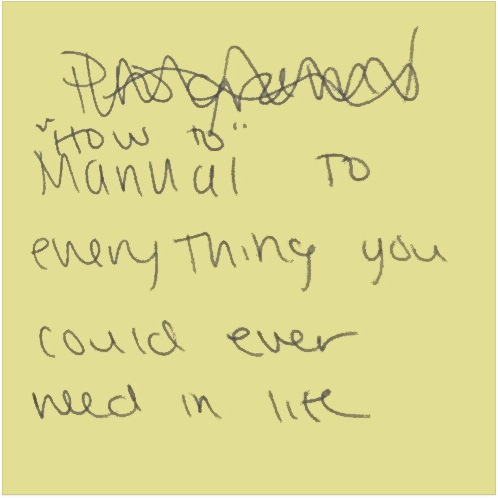 "How to"
Manual to
everything you
could ever
need in life